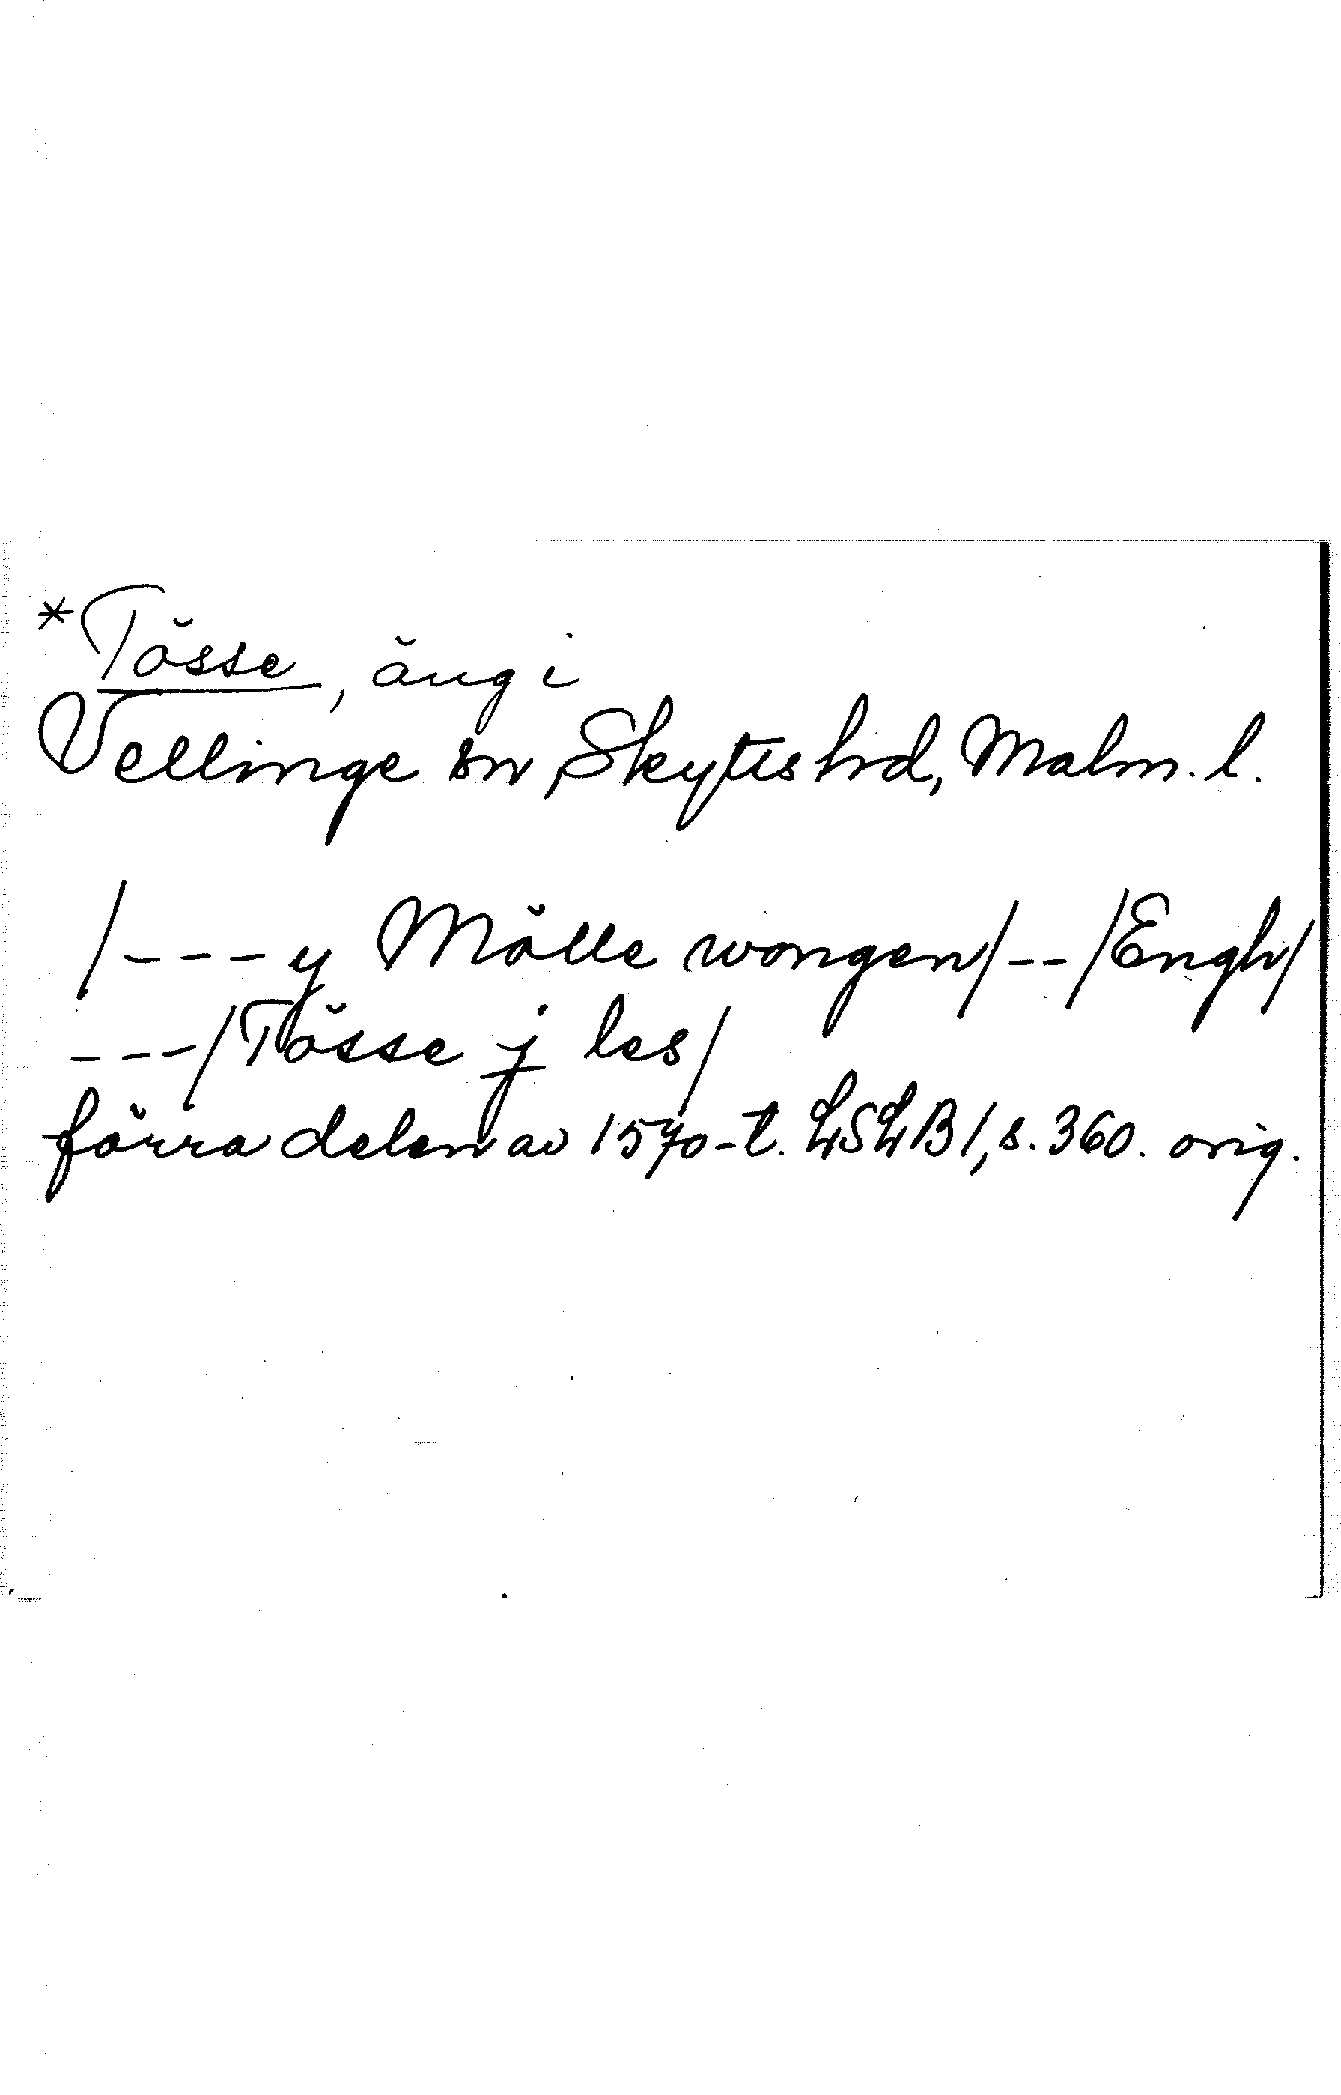 *Tösse, äng i
Vellinge sn, Skytts hd, Malm. l.
/---y Mölle wongen/--/Engh/
---/Tösse j les/
förra delen av 1570-t. LSLB 1, s. 360. orig.